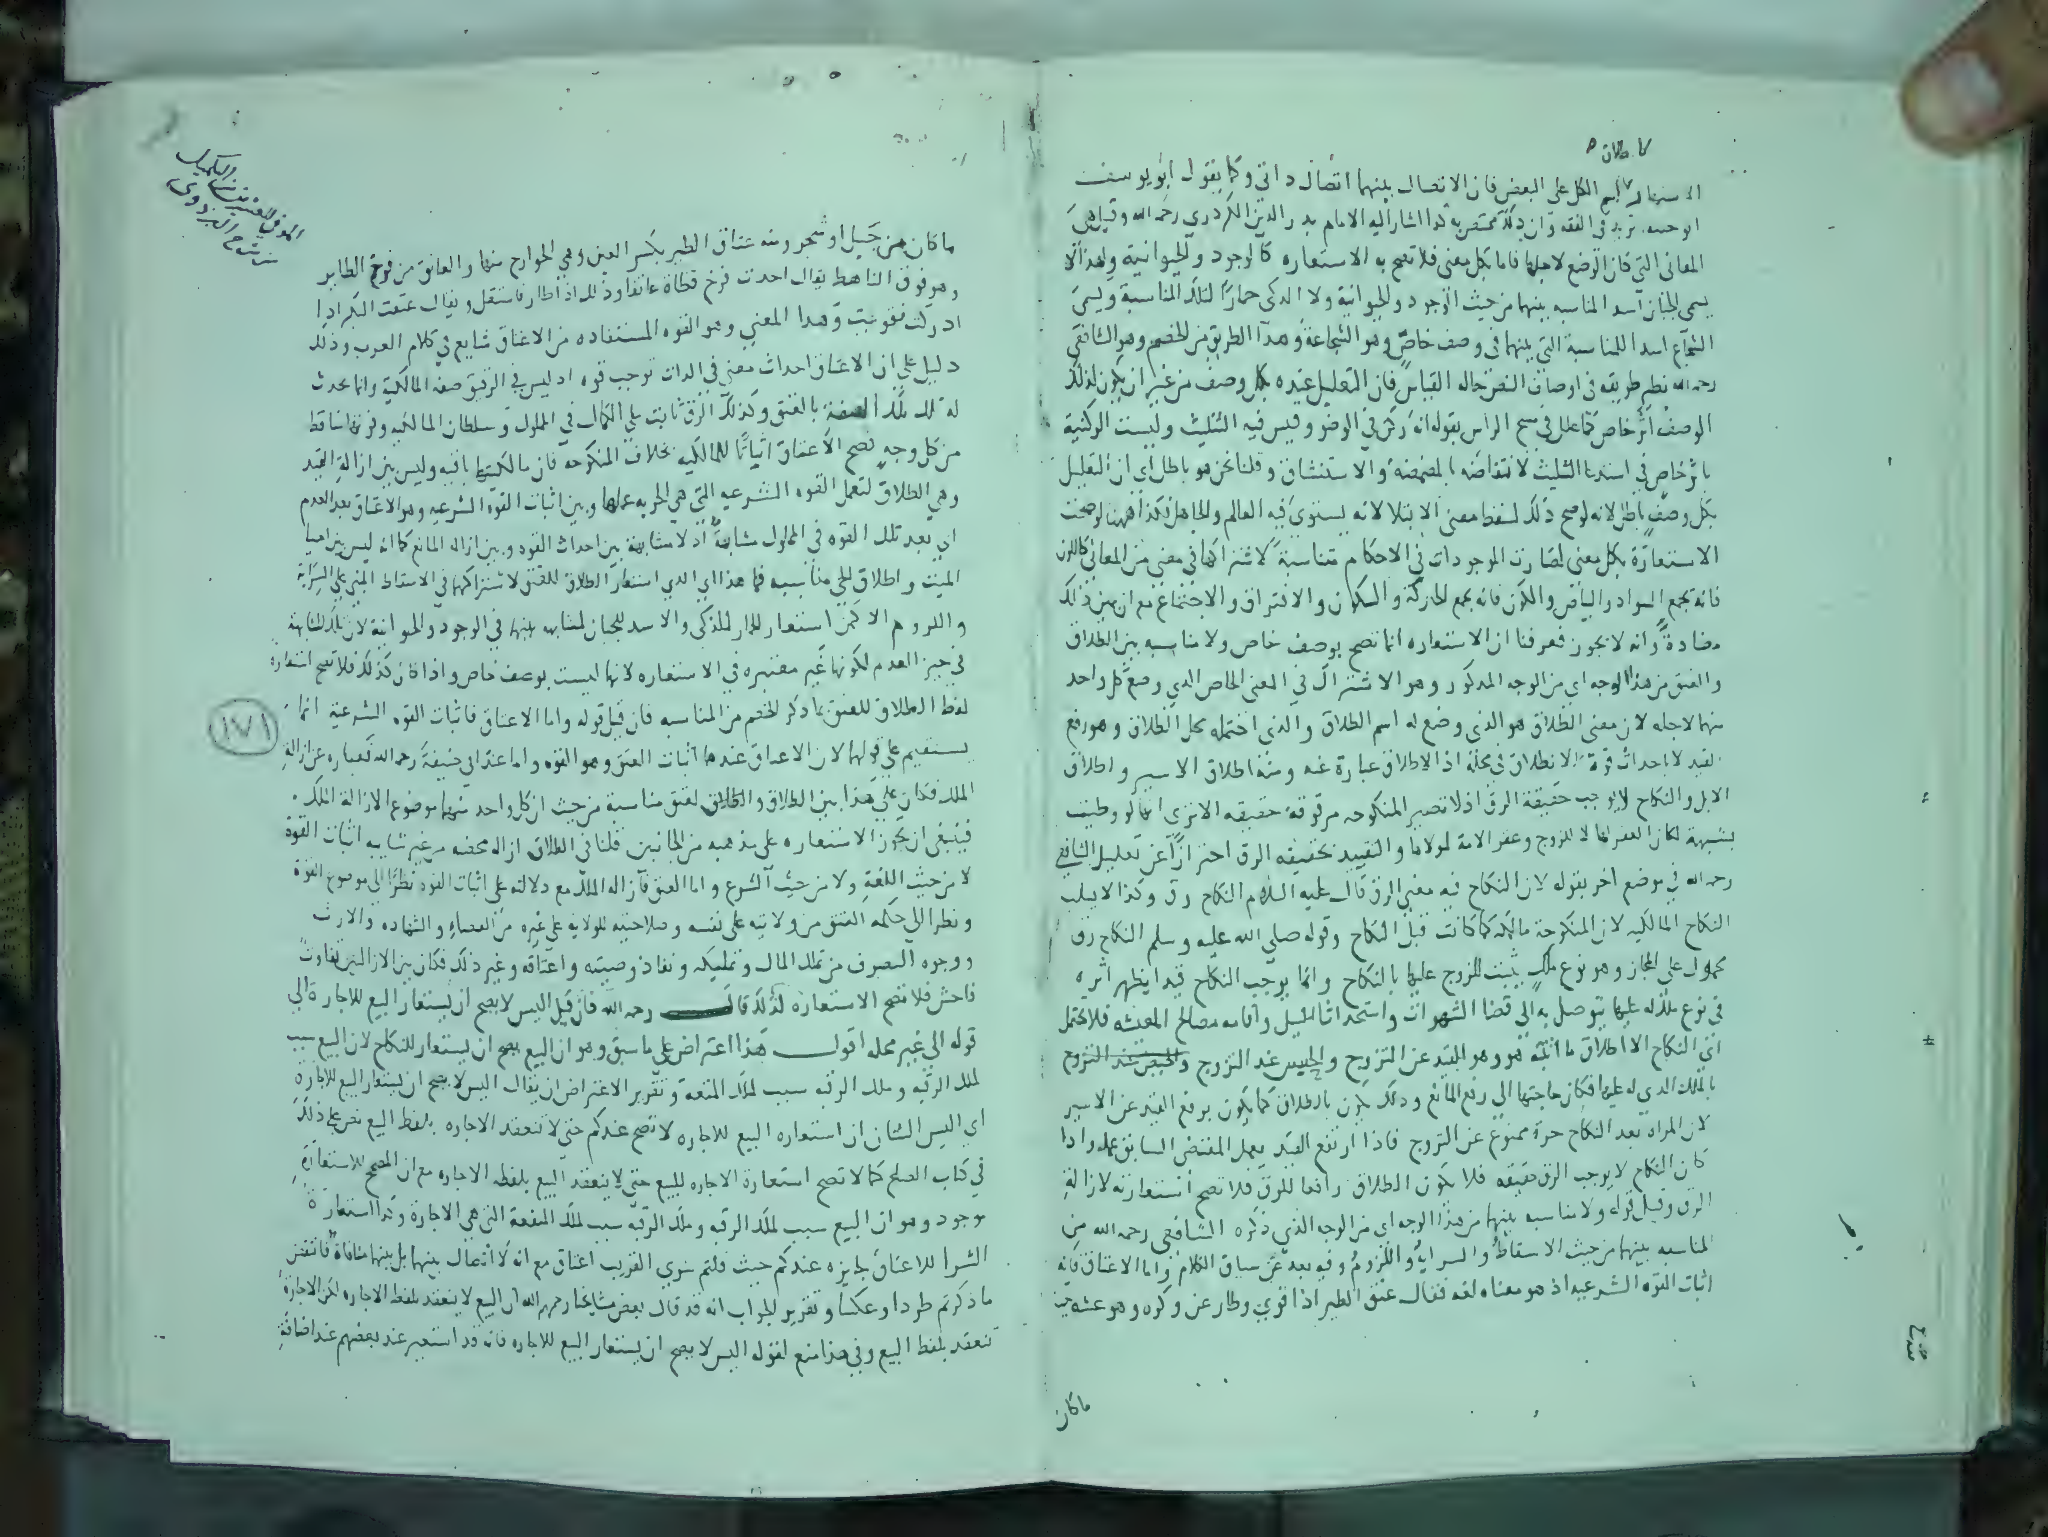 الاستعاره اسم الكل على البعض فان الاتصال بينهما اتصال ذاتي وكما يقول ابو يوسف
المعاني التي كان الوضع لاجلها فاما بكل معنى فلا تصح به الاستعاره كالوجود والحيوانية ولهذا لا
يسمى الجبان اسدا لمناسبه بينهما من حيث الوجود والحيوانية ولا الذكي حمارا لتلك المناسبة ويسمى
الشجاع اسدا للمناسبة التي بينهما في وصف خاص وهو الشجاعة وهذا الطريق من الخصم وهو الشافعي
رحمه الله نظير طريقه في اوصاف النص حاله القياس فان التعليل عنده بكل وصف من غير ان يكون لذلك
الوصف اثر خاص كما علل في مسح الراس بقوله انه ركن في الوضو فيسن فيه التثليث وليست الركنية
باثر خاص في استدعا التثليث لانتقاضه بالمضمضة والاستنشاق وقلنا نحن هو باطل اي ان التعليل
بكل وصف باطل لانه لو صح ذلك لسقط معنى الابتلا لانه يستوي فيه العالم والجاهل فكذا ههنا لو صحت
الاستعارة بكل معنى لصارت الموجودات في الاحكام متناسبة لاشتراكها في معنى من المعاني كاللون
فانه يجمع السواد والبياض والكون فانه يجمع الحركة والسكون والافتراق والاجتماع مع ان بين ذلك
مضادة وانه لا يجوز فعرفنا ان الاستعاره انما تصح بوصف خاص ولا مناسبه بين الطلاق
والعتق من هذا الوجه اي من الوجه المذكور وهو الاشتراك في المعنى الخاص الذي وضع كل واحد
منهما لاجله لان معنى الطلاق هو الذي وضع له اسم الطلاق والذي احتمله محل الطلاق وهو رفع
القيد لا احداث قوة الانطلاق في محله اذ الاطلاق عبارة عنه ومنه اطلاق الاسير واطلاق
الابل والنكاح لا يوجب حقيقة الرق اذ لا تصير المنكوحه مرقوقة حقيقه الا ترى انها لو وطئت
بشبهة لكان العقر لها لا للزوج وعقر الامة لمولاها والتقييد بحقيقه الرق احترازا عن تعليل الشافعي
رحمه الله في موضع اخر بقوله لان النكاح فيه معنى الرق قال عليه السلام النكاح رق وكذا لا يسلب
النكاح المالكيه لان المنكوحة مالكه كما كانت قبل النكاح وقوله صلى الله عليه وسلم النكاح رق
محمول على المجاز وهو نوع ملك يثبت للزوج عليها بالنكاح وانما يوجب النكاح قيدا يظهر اثره
في نوع ملك له عليها يتوصل به الى قضا الشهوات واستحداث النسل واقامه مصالح المعيشه فلا يحتمل
اي النكاح الا اطلاق ما اثبته هو وهو القيد عن التزوج والحبس عند التزوج
بالملك الذي له عليها فكان حاجتها الى رفع المانع وذلك يكون بالطلاق كما يكون برفع القيد عن الاسير
لان المراه بعد النكاح حرة ممنوع عن التزوج فاذا ارتفع القيد يعمل المقتضى السابق عمله واذا
كان النكاح لا يوجب الرق حقيقه فلا يكون الطلاق رافعا للرق فلا تصح استعارته لازالة
الرق وقيل قوله ولا مناسبه بينهما من هذا الوجه اي من الوجه الذي ذكره الشافعي رحمه الله من
المناسبه بينهما من حيث الاسقاط والسراية واللزوم وفيه بعد عن سياق الكلام واما الاعتاق فانه
اثبات القوه الشرعيه اذ هو معناه لغه فقال عتق الطير اذا قوي وطار عن وكره وهو عشه حيث
ما كان
الموفي للعشرين من التكميل
من شرح البزدوي
ما كان من جبل او شجر ومنه عتاق الطير بكسر العين وهي الجوارح منها والعاتق من فرخ الطاير
وهو فوق الناهض يقال اخذت فرخ قطاة عاتقا وذلك اذا طار فاستقل ويقال عتقت البكر اذا
ادركت فقويت وهذا المعنى وهو القوه المستفاده من الاعتاق شايع في كلام العرب وذلك
دليل على ان الاعتاق احداث معنى في الذات توجب قوه اذ ليس في الرقيق صفه المالكية وانما يحدث
له تلك الصفة بالعتق وكذلك الرق ثابت على الكمال في المملوك وسلطان المالكيه
من كل وجه فصح الاعتاق اثباتا للمالكيه بخلاف المنكوحه فان مالكيتها باقيه وليس بين ازالة القيد
وهي الطلاق لتعمل القوه الشرعيه التي هي الحريه عملها وبين اثبات القوة الشرعيه وهو الاعتاق بعد العدم
اي بعد تلك القوه في المملوك مشابهة اذ لا مشابهة بين احداث القوه وبين ازاله المانع كما انه ليس بين احيا
الميت واطلاق الحي مناسبه فما هذا اي الذي استعار الطلاق للعتق لاشتراكهما في الاسقاط المبني على السراية
واللزوم الا كمن استعار الحمار للذكي والاسد للجبان لمشابهه بينهما في الوجود والحيوانية لان تلك المشابهة
في حيز العدم لكونها غير معتبره في الاستعاره لانها ليست بوصف خاص واذا كان كذلك فلا تصح استعارة
لفظ الطلاق للعتق بما ذكر الخصم من المناسبه فان قيل قوله واما الاعتاق فاثبات القوه الشرعية انما
١٧١
يستقيم على قولهما لان الاعتاق عندهما اثبات العتق وهو القوه واما عند ابي حنيفة رحمه الله فعباره عن ازالة
الملك فكان على هذا بين الطلاق والعتق مناسبة من حيث ان كل واحد منهما موضوع لازالة الملك
فينبغي ان تجوز الاستعاره على مذهبه من الجانبين قلنا في الطلاق ازاله محضه من غير شايبه اثبات القوة
لا من حيث اللغة ولا من حيث الشرع واما العتق فازاله الملك مع دلالته على اثبات القوه نظرا الى موضوع اللغة
ونظرا الى حكمه العتق من ولايته على نفسه وصلاحيته للولايه على غيره من القضاء والشهاده والارث
ووجوه التصرف من تملك المال وتمليكه ونفاذ وصيته واعتاقه وغير ذلك فكان بين الازالتين تفاوت
فاحش فلا تصح الاستعاره لذلك قال رحمه الله فان قيل اليس لا يصح ان يستعار البيع للاجارة الى
قوله الى غير محله اقول هذا اعتراض على ما سبق وهو ان البيع يصح ان يستعار للنكاح لان البيع سبب
لملك الرقبه وملك الرقبه سبب لملك المتعة وتقرير الاعتراض ان يقال اليس لا يصح ان يستعار البيع للاجارة
اي اليس الشان ان استعاره البيع للاجاره لا تصح عندكم حتى لا تنعقد الاجاره بلفظ البيع نص على ذلك
في كتاب الصلح كما لا تصح استعارة الاجاره للبيع حتى لا ينعقد البيع بلفظ الاجاره مع ان المصحح للاستعارة
موجود وهو ان البيع سبب لملك الرقبه وملك الرقبه سبب لملك المنفعة التي هي الاجارة وكذا استعارة
الشرا للاعتاق جايزه عندكم حيث قلتم شرى القريب اعتاق مع انه لا اتصال بينهما بل بينهما منافاة فانتقض
ما ذكرتم طردا وعكسا وتقرير الجواب انه قد قال بعض مشايخنا رحمهم الله ان البيع لا ينعقد بلفظ الاجاره لكن الاجارة
تنعقد بلفظ البيع وفي هذا منع لقوله اليس لا يصح ان يستعار البيع للاجاره فانه قد استعير عند بعضهم عند اضافة